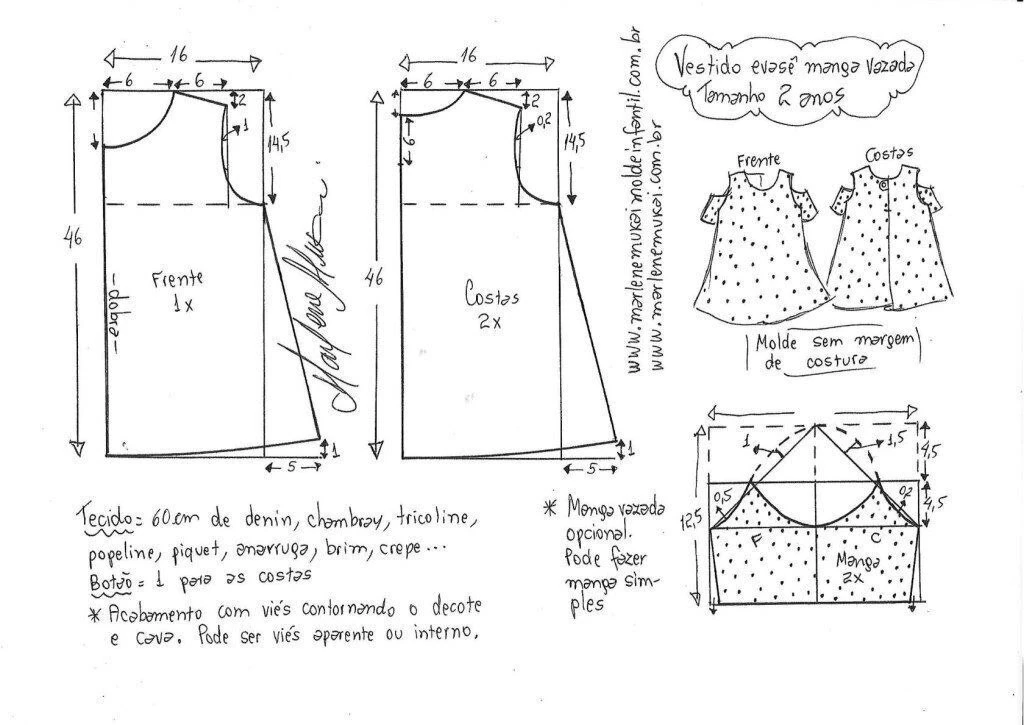 Vestido evasê manga vazada
Tamanho 2 anos
www.marlenemukaimoldeinfantil.com.br
www.marlenemukai.com.br
16
6
6
2
1
14,5
46
Frente
1x
-dobra-
1
5
16
6
6
2
0,2
6
14,5
46
Costas
2x
1
5
Frente
Costas
Molde sem margem
de costura
1
1,5
4,5
0,5
0,2
4,5
12,5
F
C
Manga
2x
Tecido= 60cm de denin, chambray, tricoline,
popeline, piquet, anarruga, brim, crepe...
Botão = 1 para as costas
* Acabamento com viés contornando o decote
e cava. Pode ser viés aparente ou interno.
* Manga vazada
opcional.
Pode fazer
manga sim-
ples